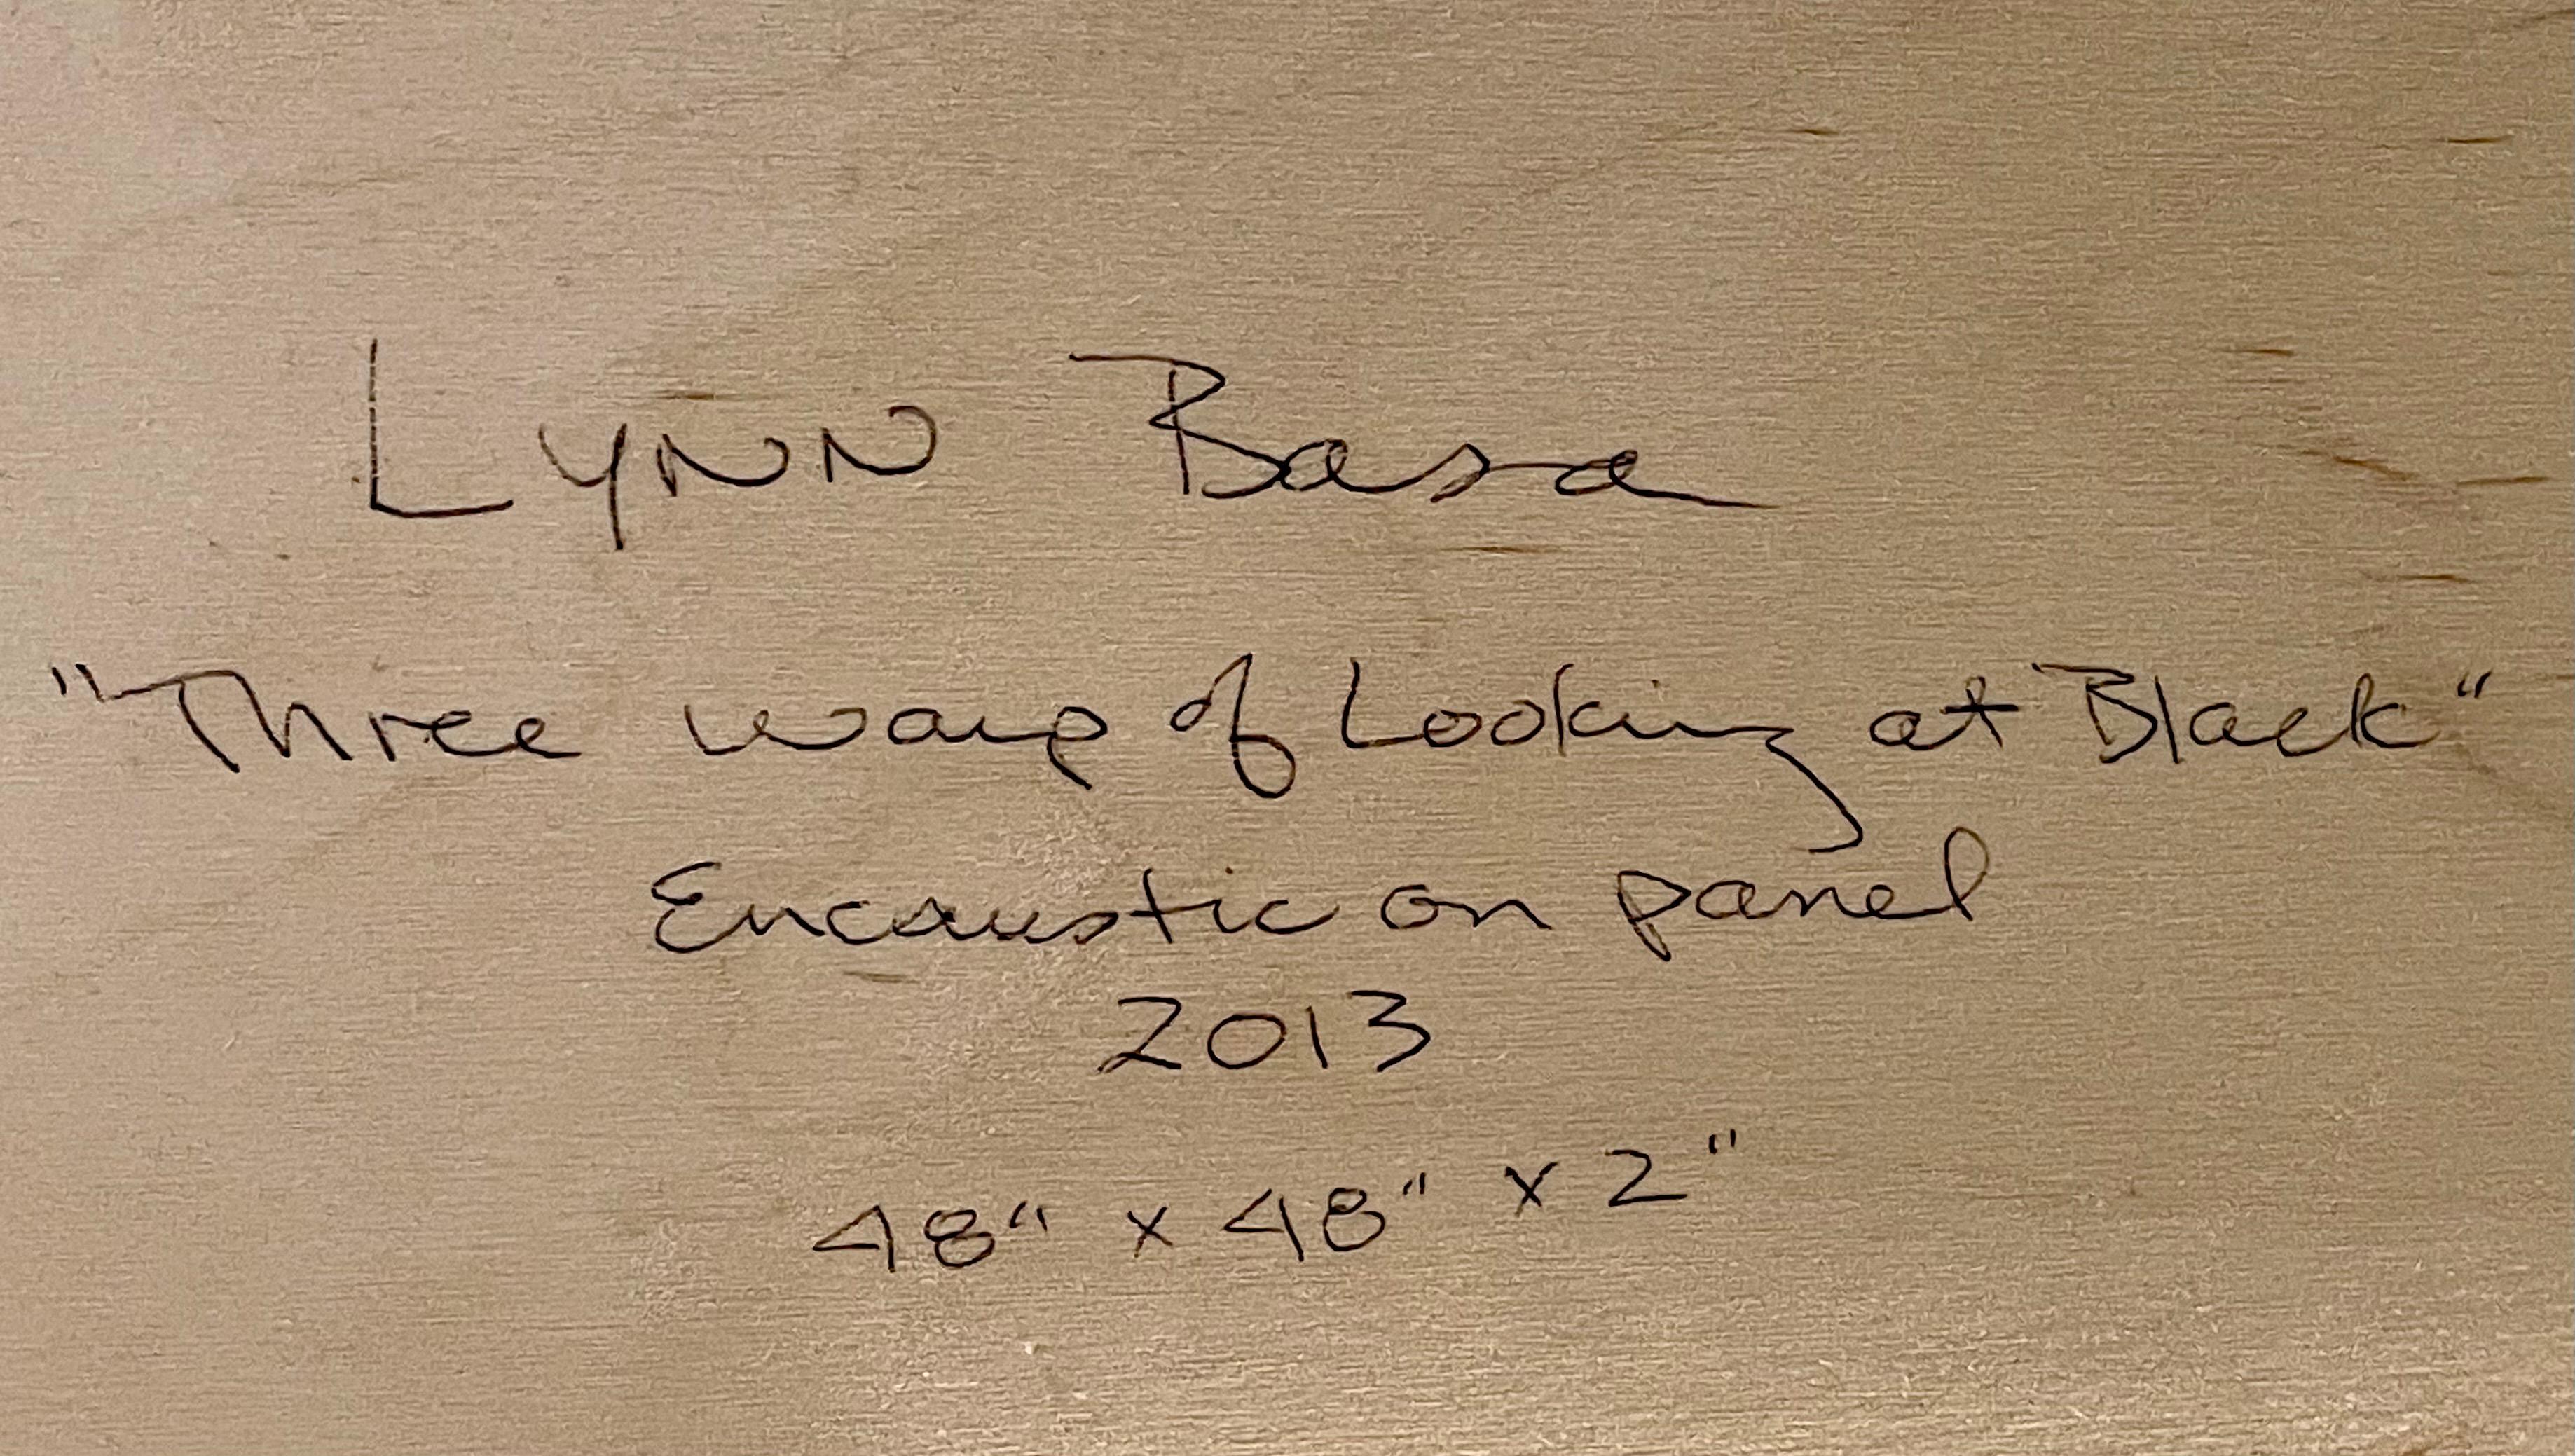 Lynn Basa
"Three ways of Looking at Black"
Encaustic on panel
2013
48" x 48" x 2"